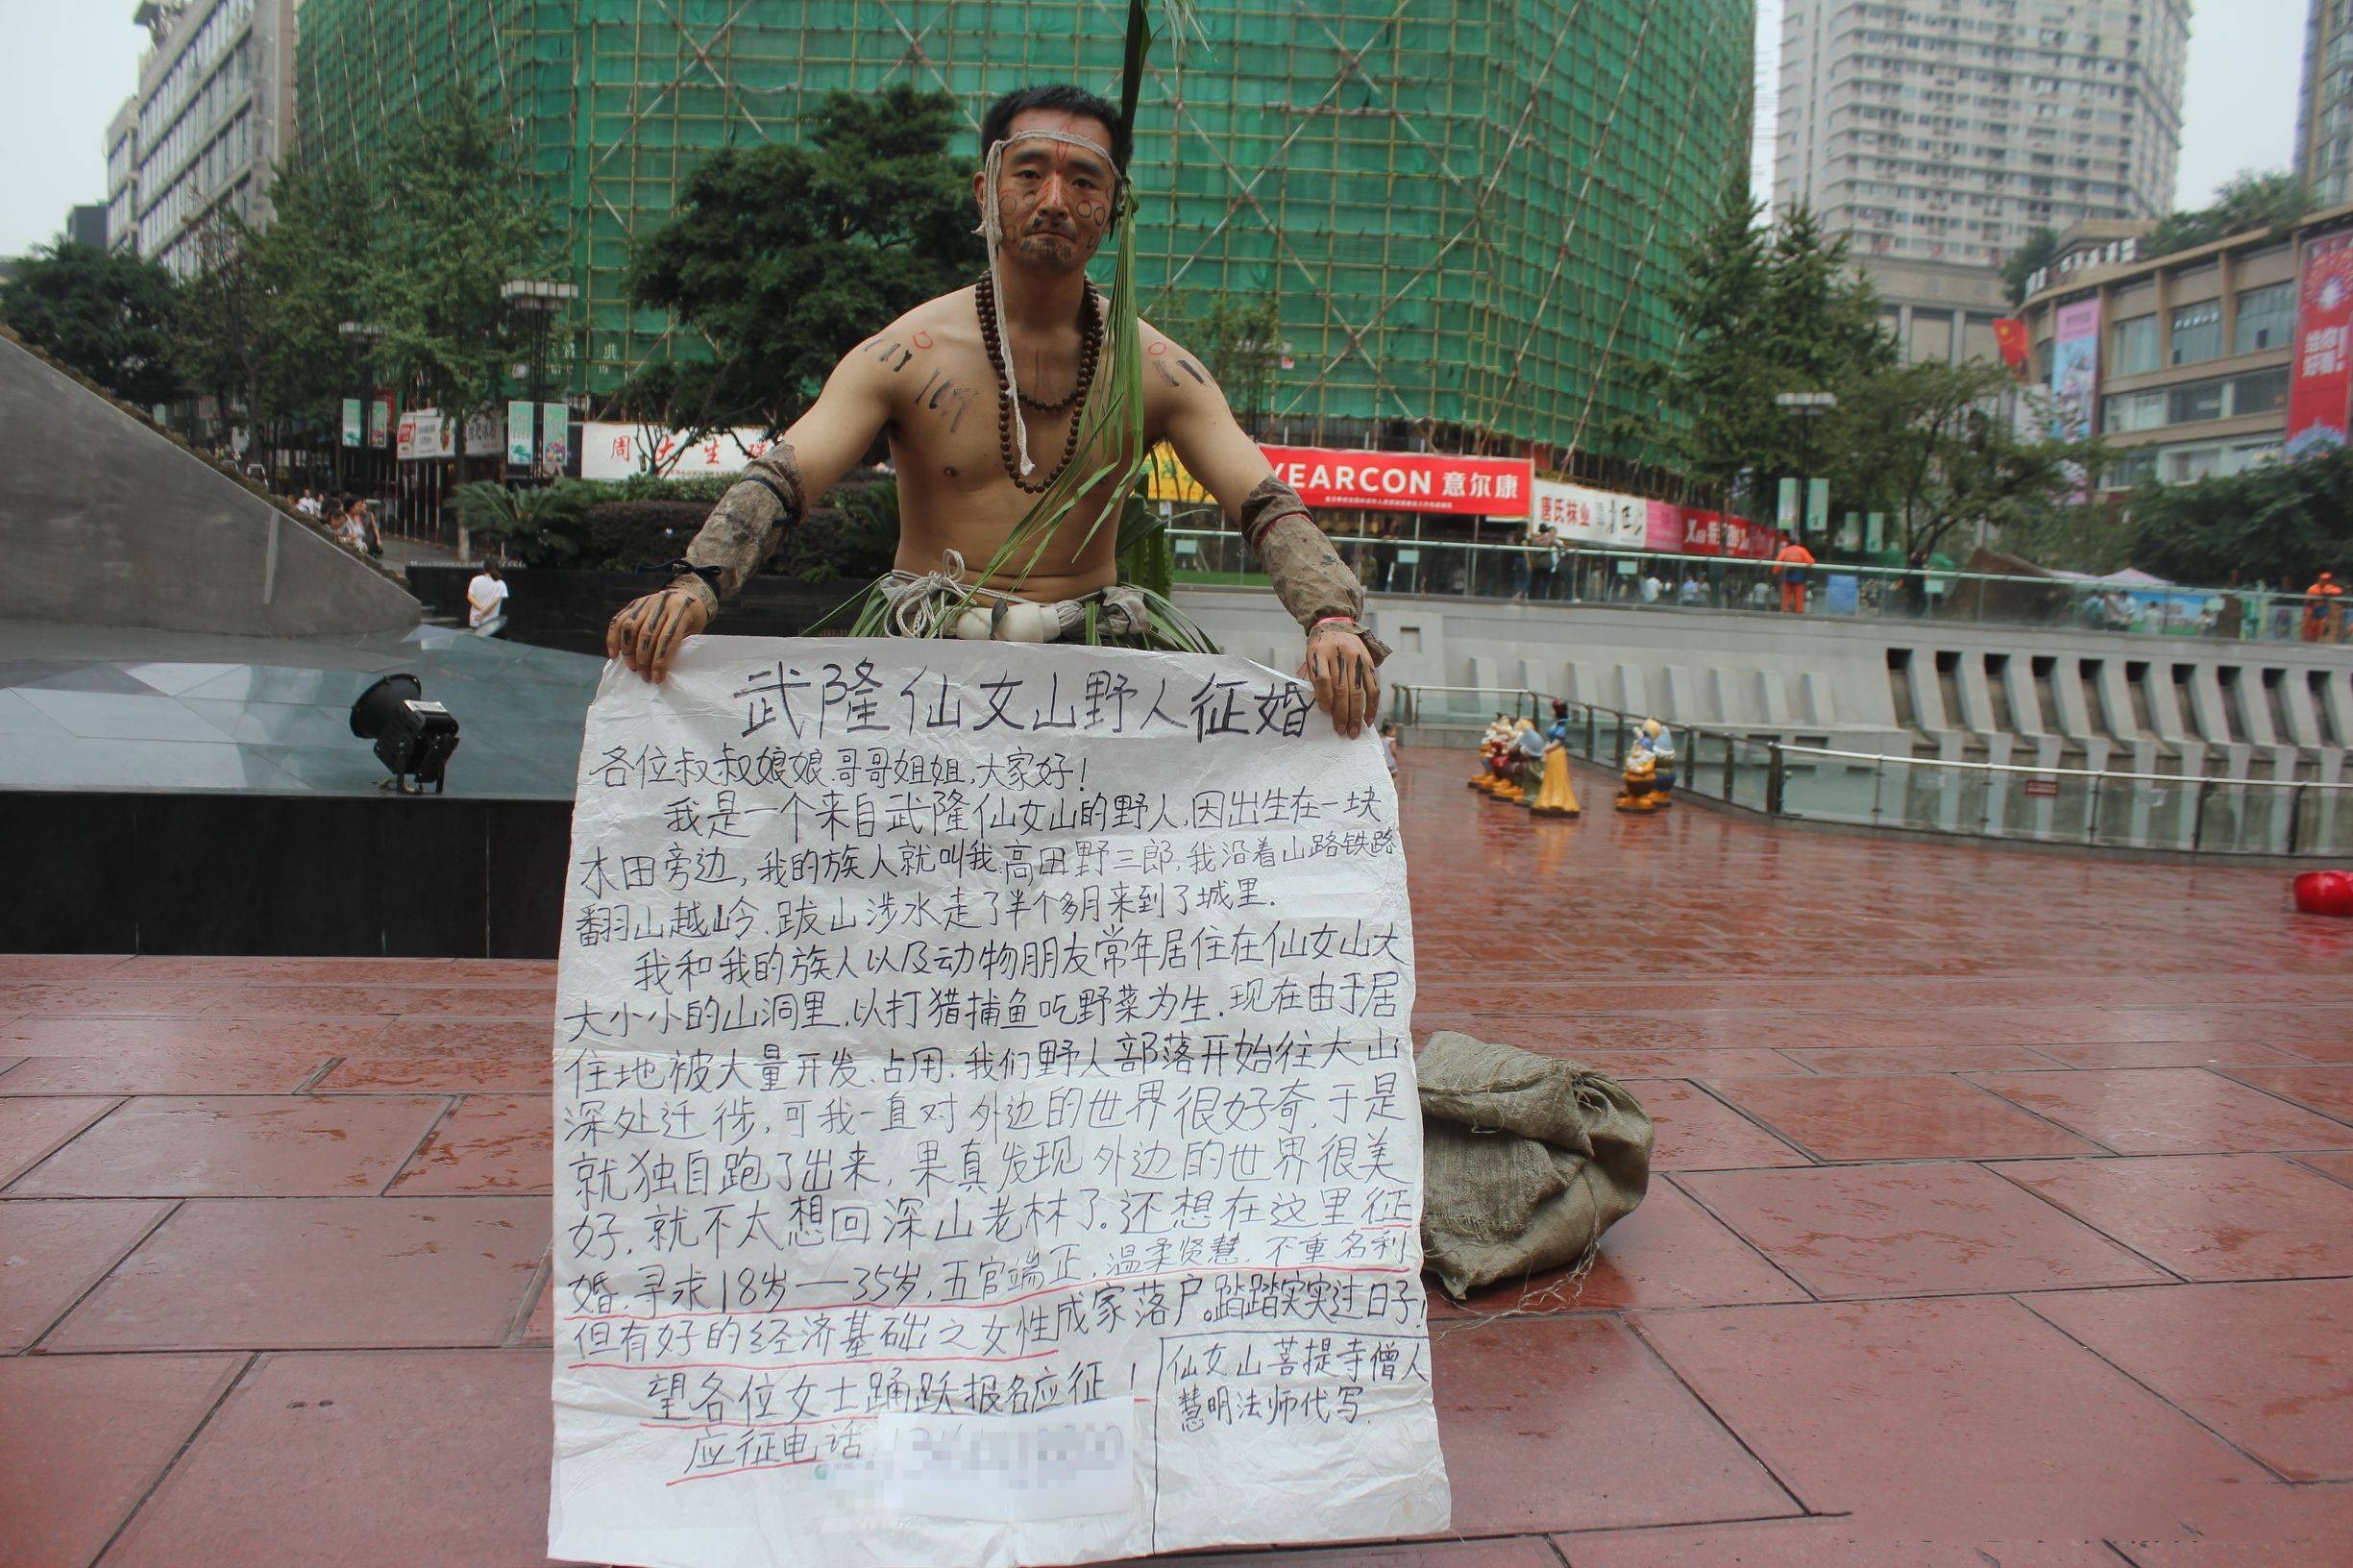 周大生珠
YEARCON 意尔康
唐氏袜业
给你
好看!
武隆仙女山野人征婚
各位叔叔娘娘.哥哥姐姐,大家好!
我是一个来自武隆仙女山的野人,因出生在一块
水田旁边,我的族人就叫我高田野三郎,我沿着山路铁路
翻山越岭.跋山涉水走了半个多月来到了城里.
我和我的族人以及动物朋友常年居住在仙女山大
大小小的山洞里,以打猎捕鱼吃野菜为生.现在由于居
住地被大量开发.占用.我们野人部落开始往大山
深处迁徙,可我一直对外边的世界很好奇,于是
就独自跑了出来,果真发现外边的世界很美
好.就不太想回深山老林了.还想在这里征
婚.寻求18岁—35岁,五官端正,温柔贤慧.不重名利
但有好的经济基础之女性成家落户.踏踏实实过日子!
望各位女士踊跃报名应征!
应征电话
仙女山菩提寺僧人
慧明法师代写.